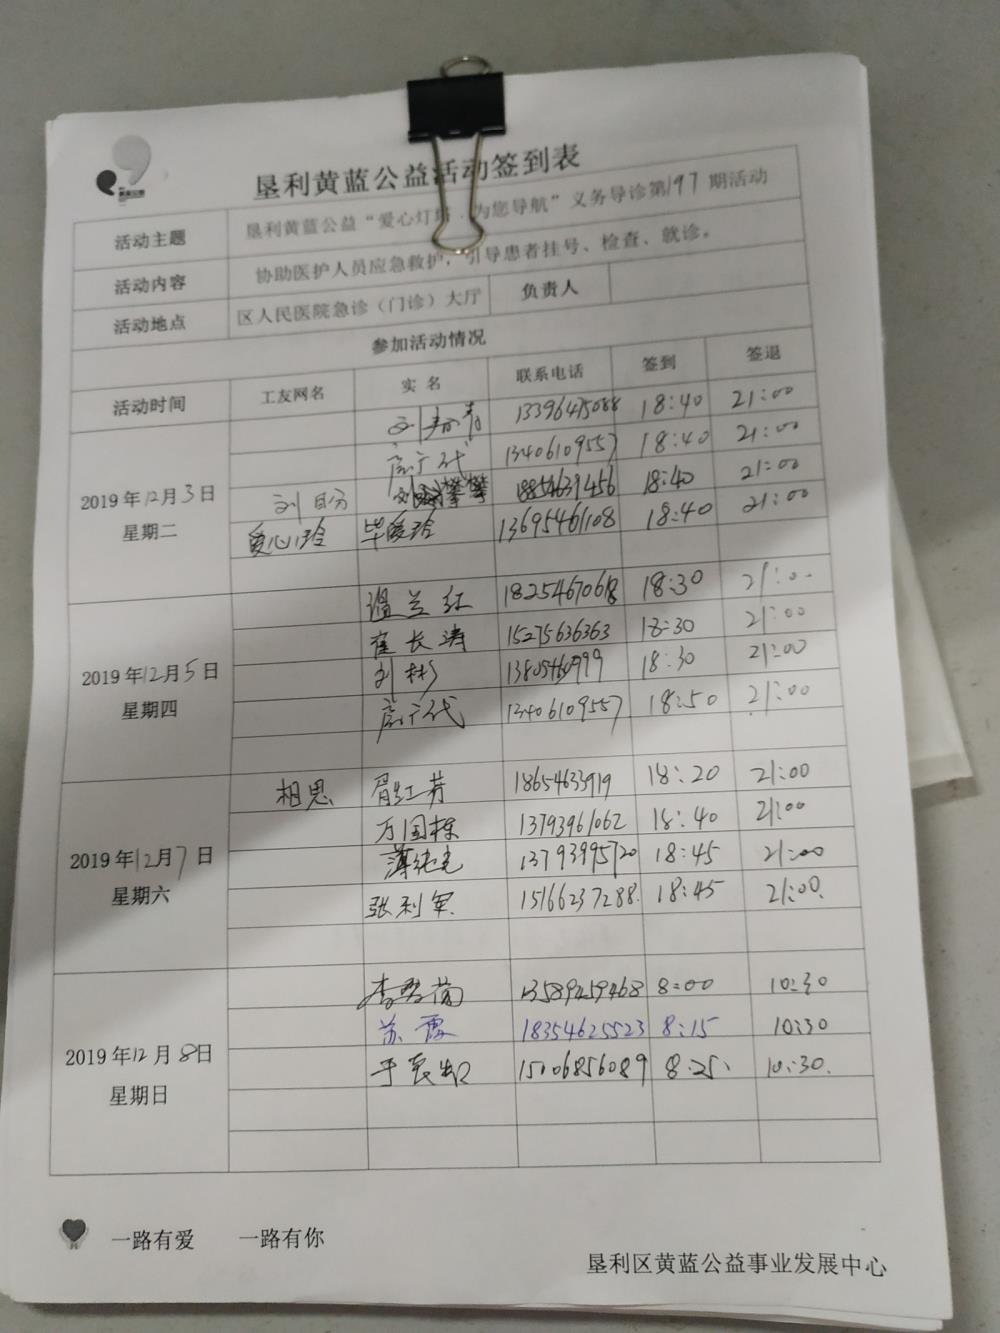 垦利黄蓝公益活动签到表
活动主题 垦利黄蓝公益“爱心灯塔.为您导航”义务导诊第197期活动
活动内容 协助医护人员应急救护，引导患者挂号、检查、就诊。
活动地点 区人民医院急诊（门诊）大厅 负责人
参加活动情况
活动时间 工友网名 实 名 联系电话 签到 签退
13396475088 18:40 21:00
13406109557 18:40 21:00
2019年12月3日
星期二
攀攀 18854639456 18:40 21:00
爱心玲 毕爱玲 13695461108 18:40 21:00
温兰红 18254670618 18:30 21:00
崔长涛 15275636363 18:30 21:00
2019年12月5日
星期四
刘彬 13805460999 18:30 21:00
13406109557 18:50 21:00
相思 胥红芳 18654633919 18:20 21:00
万国栋 13793961062 18:40 21:00
2019年12月7日
星期六
13793995720 18:45 21:00
张利军 15166237288 18:45 21:00
13589459468 8:00 10:30
苏霞 18354625523 8:15 10:30
2019年12月8日
星期日
15106856089 8:25 10:30
一路有爱 一路有你
垦利区黄蓝公益事业发展中心